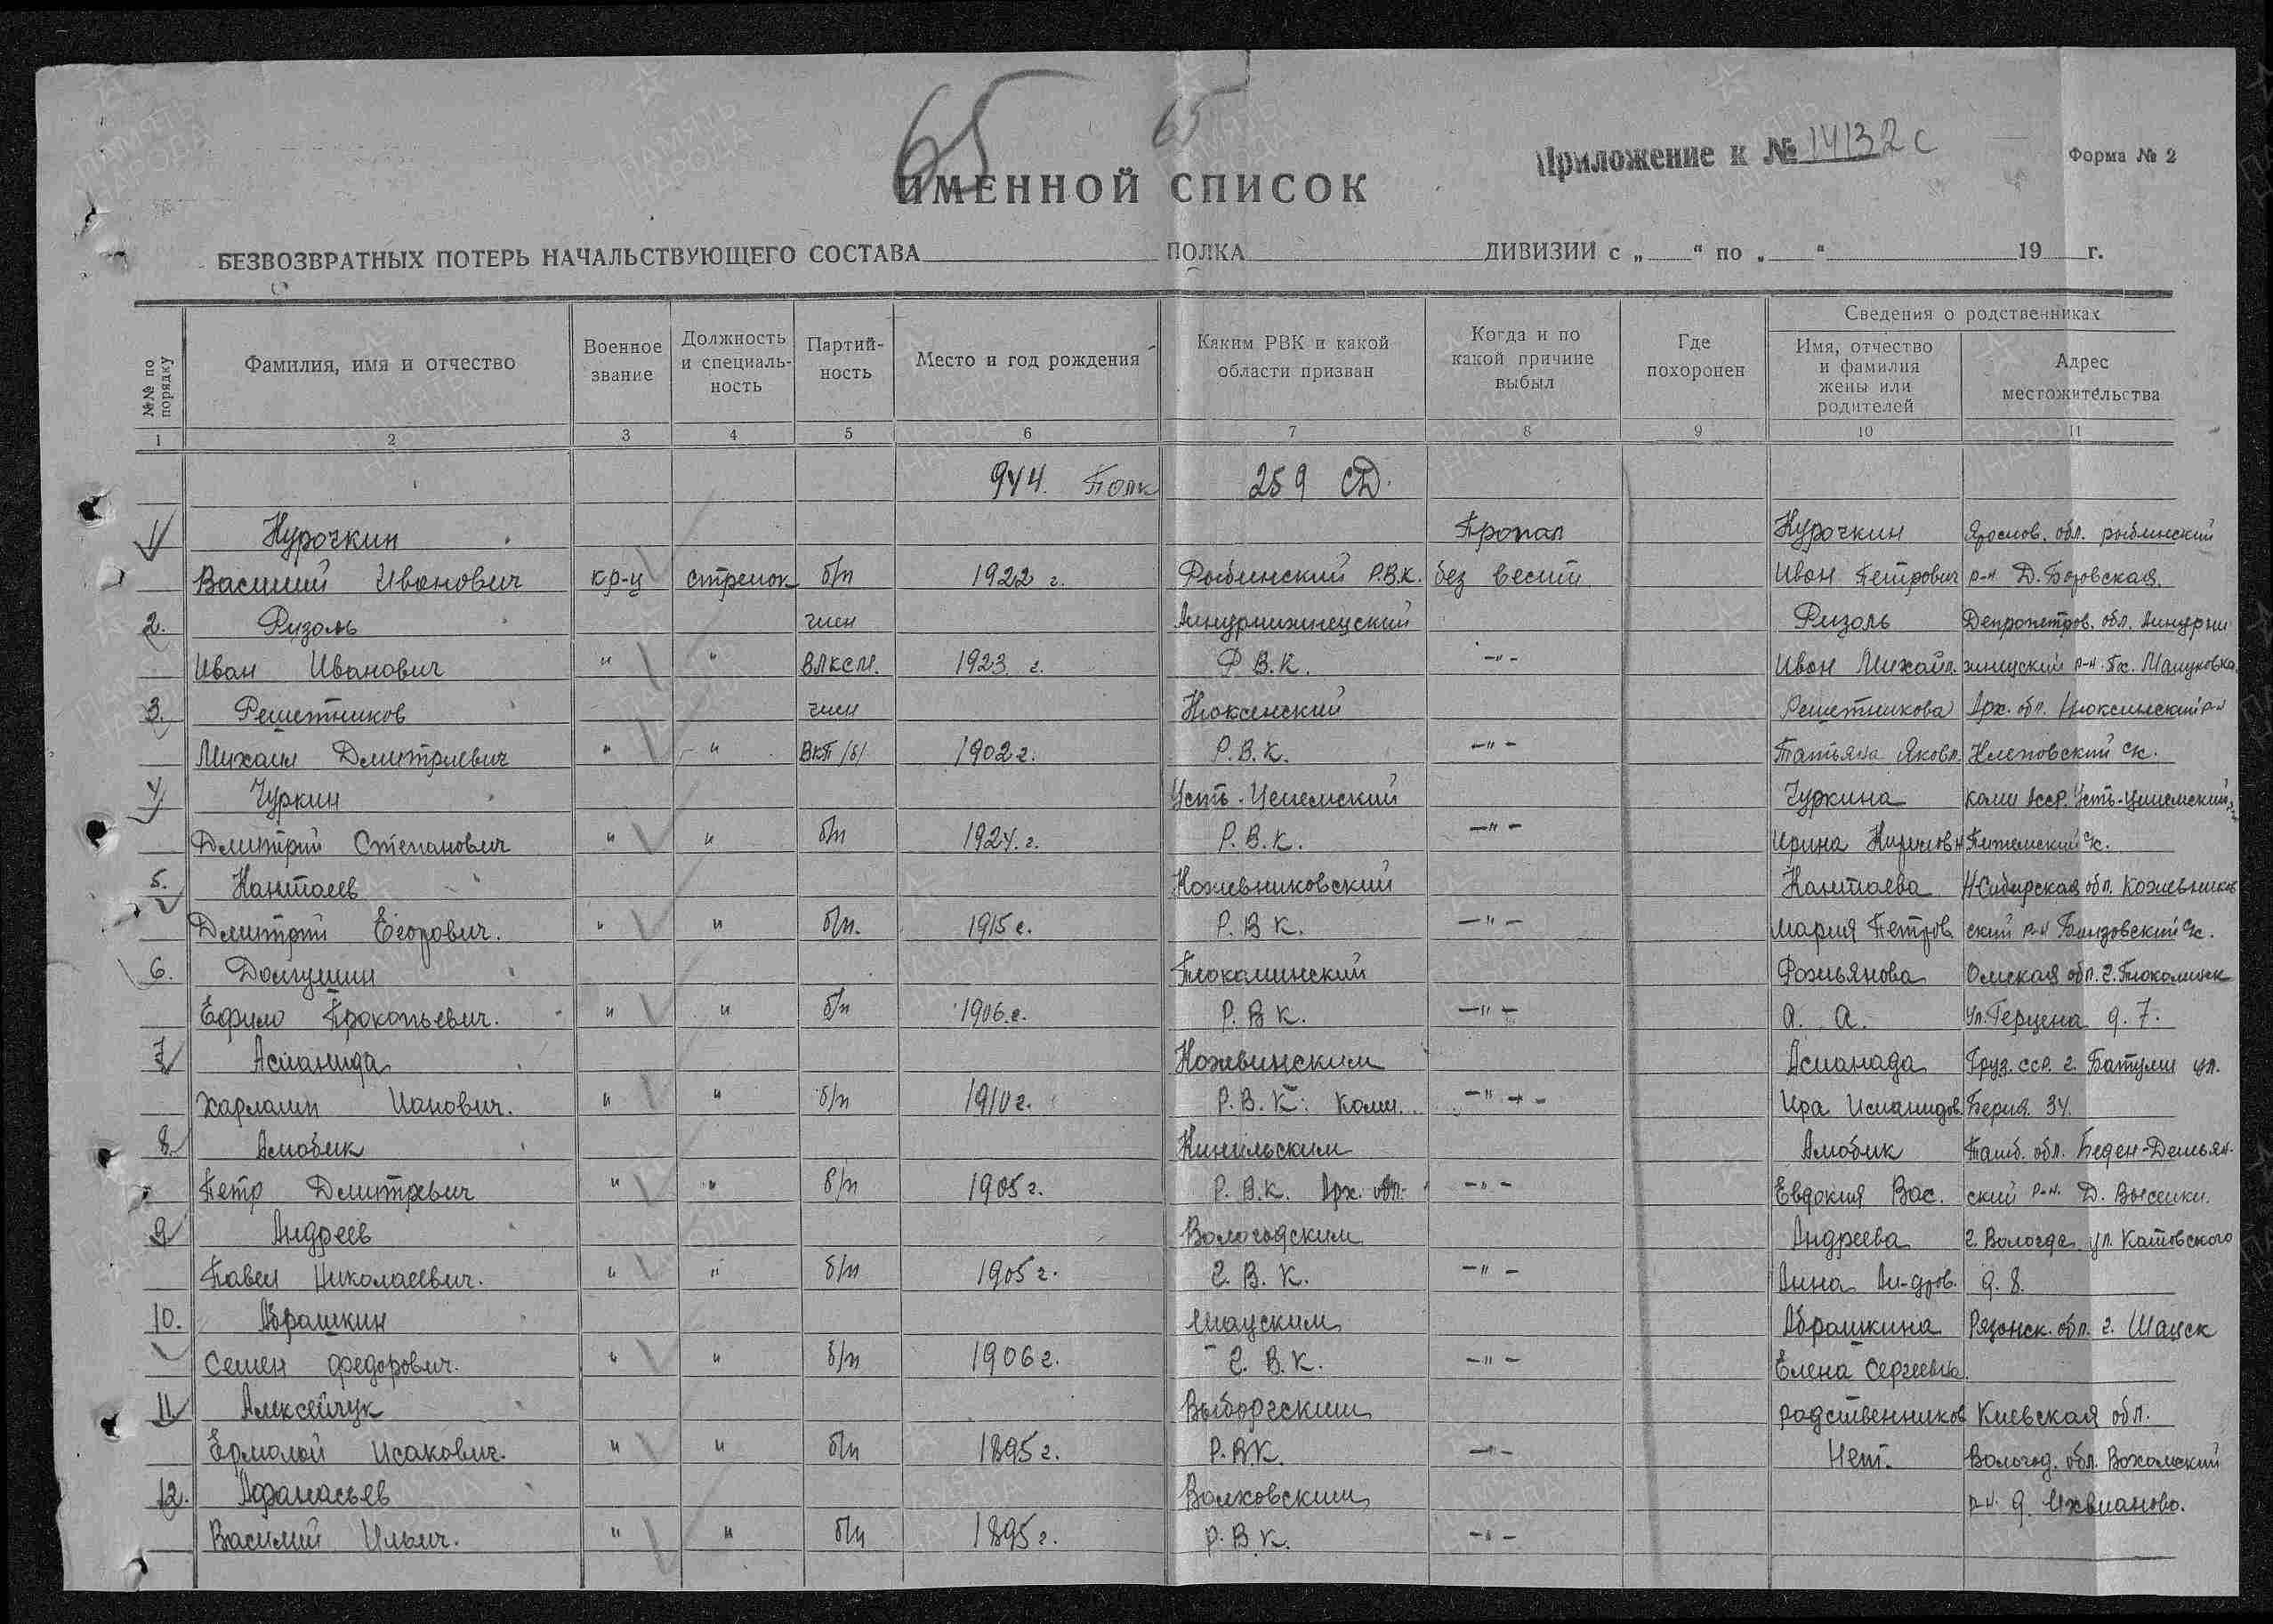 65
65
Приложение к № 14132 с
Форма № 2
ИМЕННОЙ СПИСОК
БЕЗВОЗВРАТНЫХ ПОТЕРЬ НАЧАЛЬСТВУЮЩЕГО СОСТАВА ПОЛКА ДИВИЗИИ с „ “ по „ “ 19 г.
№№ по порядку
Фамилия, имя и отчество
Военное звание
Должность и специальность
Партийность
Место и год рождения
Каким РВК и какой области призван
Когда и по какой причине выбыл
Где похоронен
Сведения о родственниках
Имя, отчество и фамилия жены или родителей
Адрес местожительства
1 2 3 4 5 6 7 8 9 10 11
944. Полк 259 СД.
1 Курочкин Пропал Курочкин Ярослов. обл. рыбинский
Василий Иванович кр-ц стрелок б/п 1922 г. Рыбинский Р.В.К. без вести Иван Петрович р-н Д. Боровская.
2. Ризоль член Ризоль Депропетров. обл.
Иван Иванович " " ВЛКСМ. 1923 г. Р.В.К. -"- Иван Михайл. р-н
3. Решетников член Нюксенский Решетникова Арх. обл. Нюксинский р-н
Михаил Дмитриевич " " ВКП/б/ 1902 г. Р.В.К. -"- Татьяна Яковл. с/с.
4 Чуркин Усть-Целемский Чуркина коми Асср. Усть-Цилемский
Дмитрий Степанович " " б/п 1924. г. Р.В.К. -"- Ирина с/с.
5. Каштаев Кожевниковский Каштаева Н-Сибирская обл. Кожевников
Дмитрий Егорович. " " б/п. 1915 г. Р.В.К. -"- Мария Петров. ский р-н с/с.
6. Долгушин Тюкалинский Омская обл. г. Тюкалинск
Ефим Прокопьевич. " " б/п 1906.г. Р.В.К. -"- А. А. ул. Герцена д. 7.
7 Асланида Кожвинским Асланада Груз. сср. г. Батуми ул.
Харламп Ианович. " " б/п 1910 г. Р.В.К. Коми. -"- Ира Берия. 34.
8 Алобик Алобик Тамб. обл. Беден-Демьян-
Петр Дмитревич " " б/п 1905 г. Р.В.К. Арх. обл. -"- Евдокия Вас. ский р-н. Д.
9 Андреев Вологодским Андреева г. Вологда ул. Катовского
Павел Николаевич. " " б/п 1905 г. Г.В.К. -"- Анна д. 8.
10. Абрашкин Шацским Абрашкина Рязанск. обл. г. Шацск
Семен Федорович. " " б/п 1906 г. Г.В.К. -"- Елена Сергеевна.
11 Алексейчук Выборгским родственников Киевская обл.
Ермолай Исакович. " " б/п 1895 г. Р.В.К. -"- Нет. Вологод. обл. Вохомский
12. Афанасьев Волховским р-н. д.
Василий Ильич. " " б/п 1895 г. Р.В.К. -"-